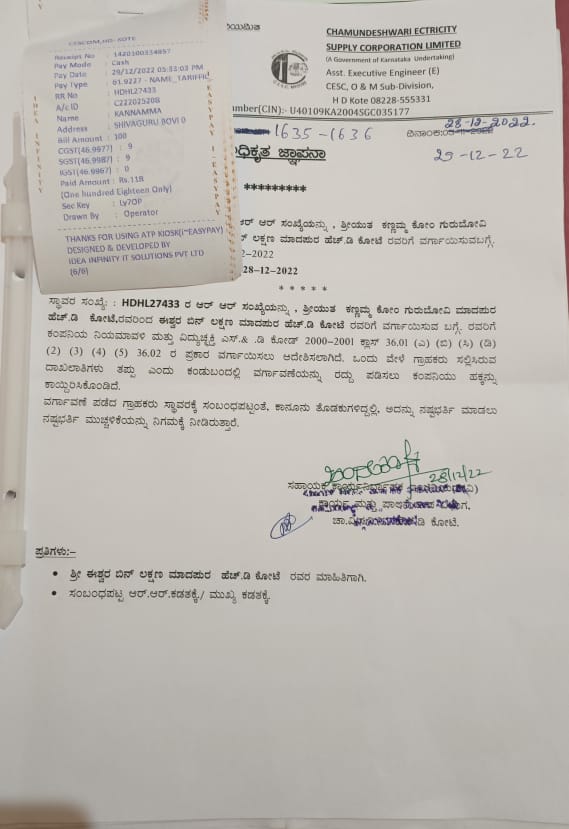 CESCOM,HD-KOTE
Receipt No : 1420100334857
Pay Mode : Cash
Pay Date : 29/12/2022 05:33:03 PM
Pay Type : 61.9227 - NAME_TARIFFIC
RR No : HDHL27433
A/c ID : C22202520B
Name : KANNAMMA
Address : SHIVAGURU BOVI 0
Bill Amount : 100
CGST(46.9977) : 9
SGST(46.9987) : 9
IGST(46.9967) : 0
Paid Amount : Rs.118
(One hundred Eighteen Only)
Sec Key : Ly7OP
Drawn By : Operator
THANKS FOR USING ATP KIOSK(i~EASYPAY)
DESIGNED & DEVELOPED BY
IDEA INFINITY IT SOLUTIONS PVT LTD
(6/6)
IDEA INFINITY
I-EASYPAY
ನಿಯಮಿತ
CHAMUNDESHWARI ECTRICITY
SUPPLY CORPORATION LIMITED
(A Government of Karnataka Undertaking)
Asst. Executive Engineer (E)
CESC, O & M Sub-Division,
H D Kote 08228-555331
umber(CIN):- U40109KA2004SGC035177
1635-1636
28-12-2022.
ದಿನಾಂಕ:
ಧಿಕೃತ ಜ್ಞಾಪನಾ
29-12-22
*********
ಆರ್ ಆರ್ ಸಂಖ್ಯೆಯನ್ನು , ಶ್ರೀಯುತ ಕಣ್ಣಮ್ಮ ಕೋಂ ಗುರುಬೋವಿ
ಲಕ್ಷಣ ಮಾದಪುರ ಹೆಚ್.ಡಿ ಕೋಟೆ ರವರಿಗೆ ವರ್ಗಾಯಿಸುವಬಗ್ಗೆ.
2-2022
28-12-2022
* * * * *
ಸ್ಥಾವರ ಸಂಖ್ಯೆ: : HDHL27433 ರ ಆರ್ ಆರ್ ಸಂಖ್ಯೆಯನ್ನು , ಶ್ರೀಯುತ ಕಣ್ಣಮ್ಮ ಕೋಂ ಗುರುಬೋವಿ ಮಾದಪುರ
ಹೆಚ್.ಡಿ ಕೋಟೆ,ರವರಿಂದ ಈಶ್ವರ ಬಿನ್ ಲಕ್ಷಣ ಮಾದಪುರ ಹೆಚ್.ಡಿ ಕೋಟೆ ರವರಿಗೆ ವರ್ಗಾಯಿಸುವ ಬಗ್ಗೆ, ರವರಿಗೆ
ಕಂಪನಿಯ ನಿಯಮಾವಳಿ ಮತ್ತು ವಿದ್ಯುಚ್ಛಕ್ತಿ ಎಸ್.& .ಡಿ ಕೋಡ್ 2000-2001 ಕ್ಲಾಸ್ 36.01 (ಎ) (ಬಿ) (ಸಿ) (ಡಿ)
(2) (3) (4) (5) 36.02 ರ ಪ್ರಕಾರ ವರ್ಗಾಯಿಸಲು ಆದೇಶಿಸಲಾಗಿದೆ. ಒಂದು ವೇಳೆ ಗ್ರಾಹಕರು ಸಲ್ಲಿಸಿರುವ
ದಾಖಲಾತಿಗಳು ತಪ್ಪು ಎಂದು ಕಂಡುಬಂದಲ್ಲಿ ವರ್ಗಾವಣೆಯನ್ನು ರದ್ದು ಪಡಿಸಲು ಕಂಪನಿಯು ಹಕ್ಕನ್ನು
ಕಾಯ್ದಿರಿಸಿಕೊಂಡಿದೆ.
ವರ್ಗಾವಣೆ ಪಡೆದ ಗ್ರಾಹಕರು ಸ್ಥಾವರಕ್ಕೆ ಸಂಬಂಧಪಟ್ಟಂತೆ, ಕಾನೂನು ತೊಡಕುಗಳಿದ್ದಲ್ಲಿ, ಅದನ್ನು ನಷ್ಟಭರ್ತಿ ಮಾಡಲು
ನಷ್ಟಭರ್ತಿ ಮುಚ್ಚಳಿಕೆಯನ್ನು ನಿಗಮಕ್ಕೆ ನೀಡಿರುತ್ತಾರೆ.
28/12/22
ಸಹಾಯಕ ಕಾರ್ಯನಿರ್ವಾಹಕ
ಕಾರ್ಯ ಮತ್ತು
ಡಿ ಕೋಟೆ.
ಪ್ರತಿಗಳು:-
• ಶ್ರೀ ಈಶ್ವರ ಬಿನ್ ಲಕ್ಷಣ ಮಾದಪುರ ಹೆಚ್.ಡಿ ಕೋಟೆ ರವರ ಮಾಹಿತಿಗಾಗಿ.
• ಸಂಬಂಧಪಟ್ಟ ಆರ್.ಆರ್.ಕಡತಕ್ಕೆ./ ಮುಖ್ಯ ಕಡತಕ್ಕೆ.